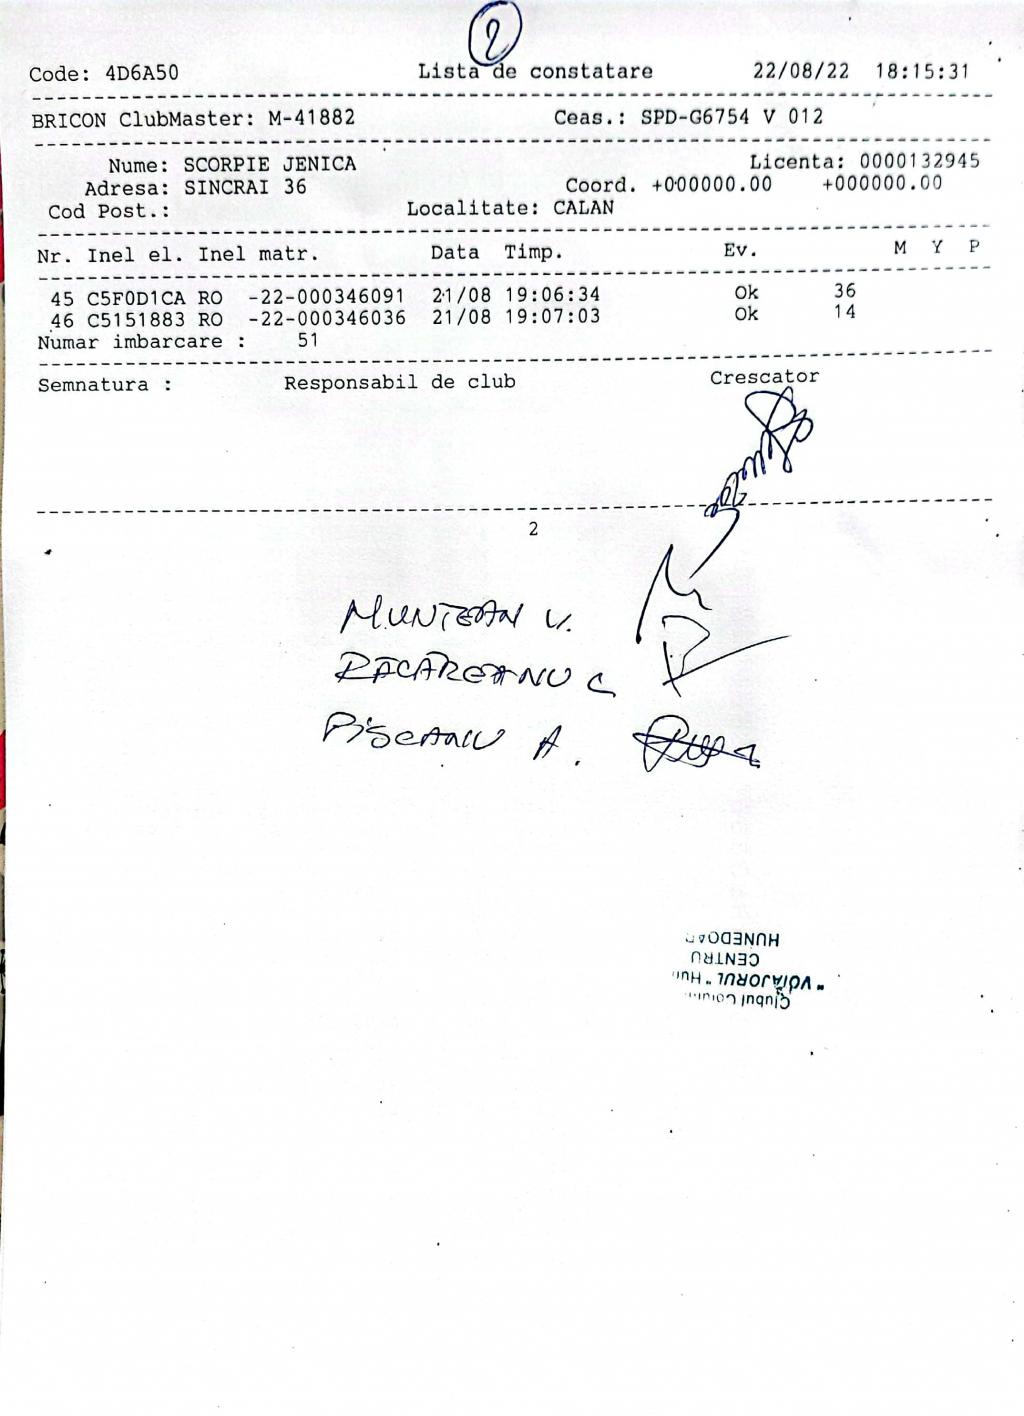 2
Code: 4D6A50 Lista de constatare 22/08/22 18:15:31
BRICON ClubMaster: M-41882 Ceas.: SPD-G6754 V 012
Nume: SCORPIE JENICA Licenta: 0000132945
Adresa: SINCRAI 36 Coord. +000000.00 +000000.00
Cod Post.: Localitate: CALAN
Nr. Inel el. Inel matr. Data Timp. Ev. M Y P
45 C5F0D1CA RO -22-000346091 21/08 19:06:34 Ok 36
46 C5151883 RO -22-000346036 21/08 19:07:03 Ok 14
Numar imbarcare : 51
Semnatura : Responsabil de club Crescator
2
MUNTEAN V.
RACAREANU C
PISCANU A.
Clubul
"VOIAJORUL"
CENTRU